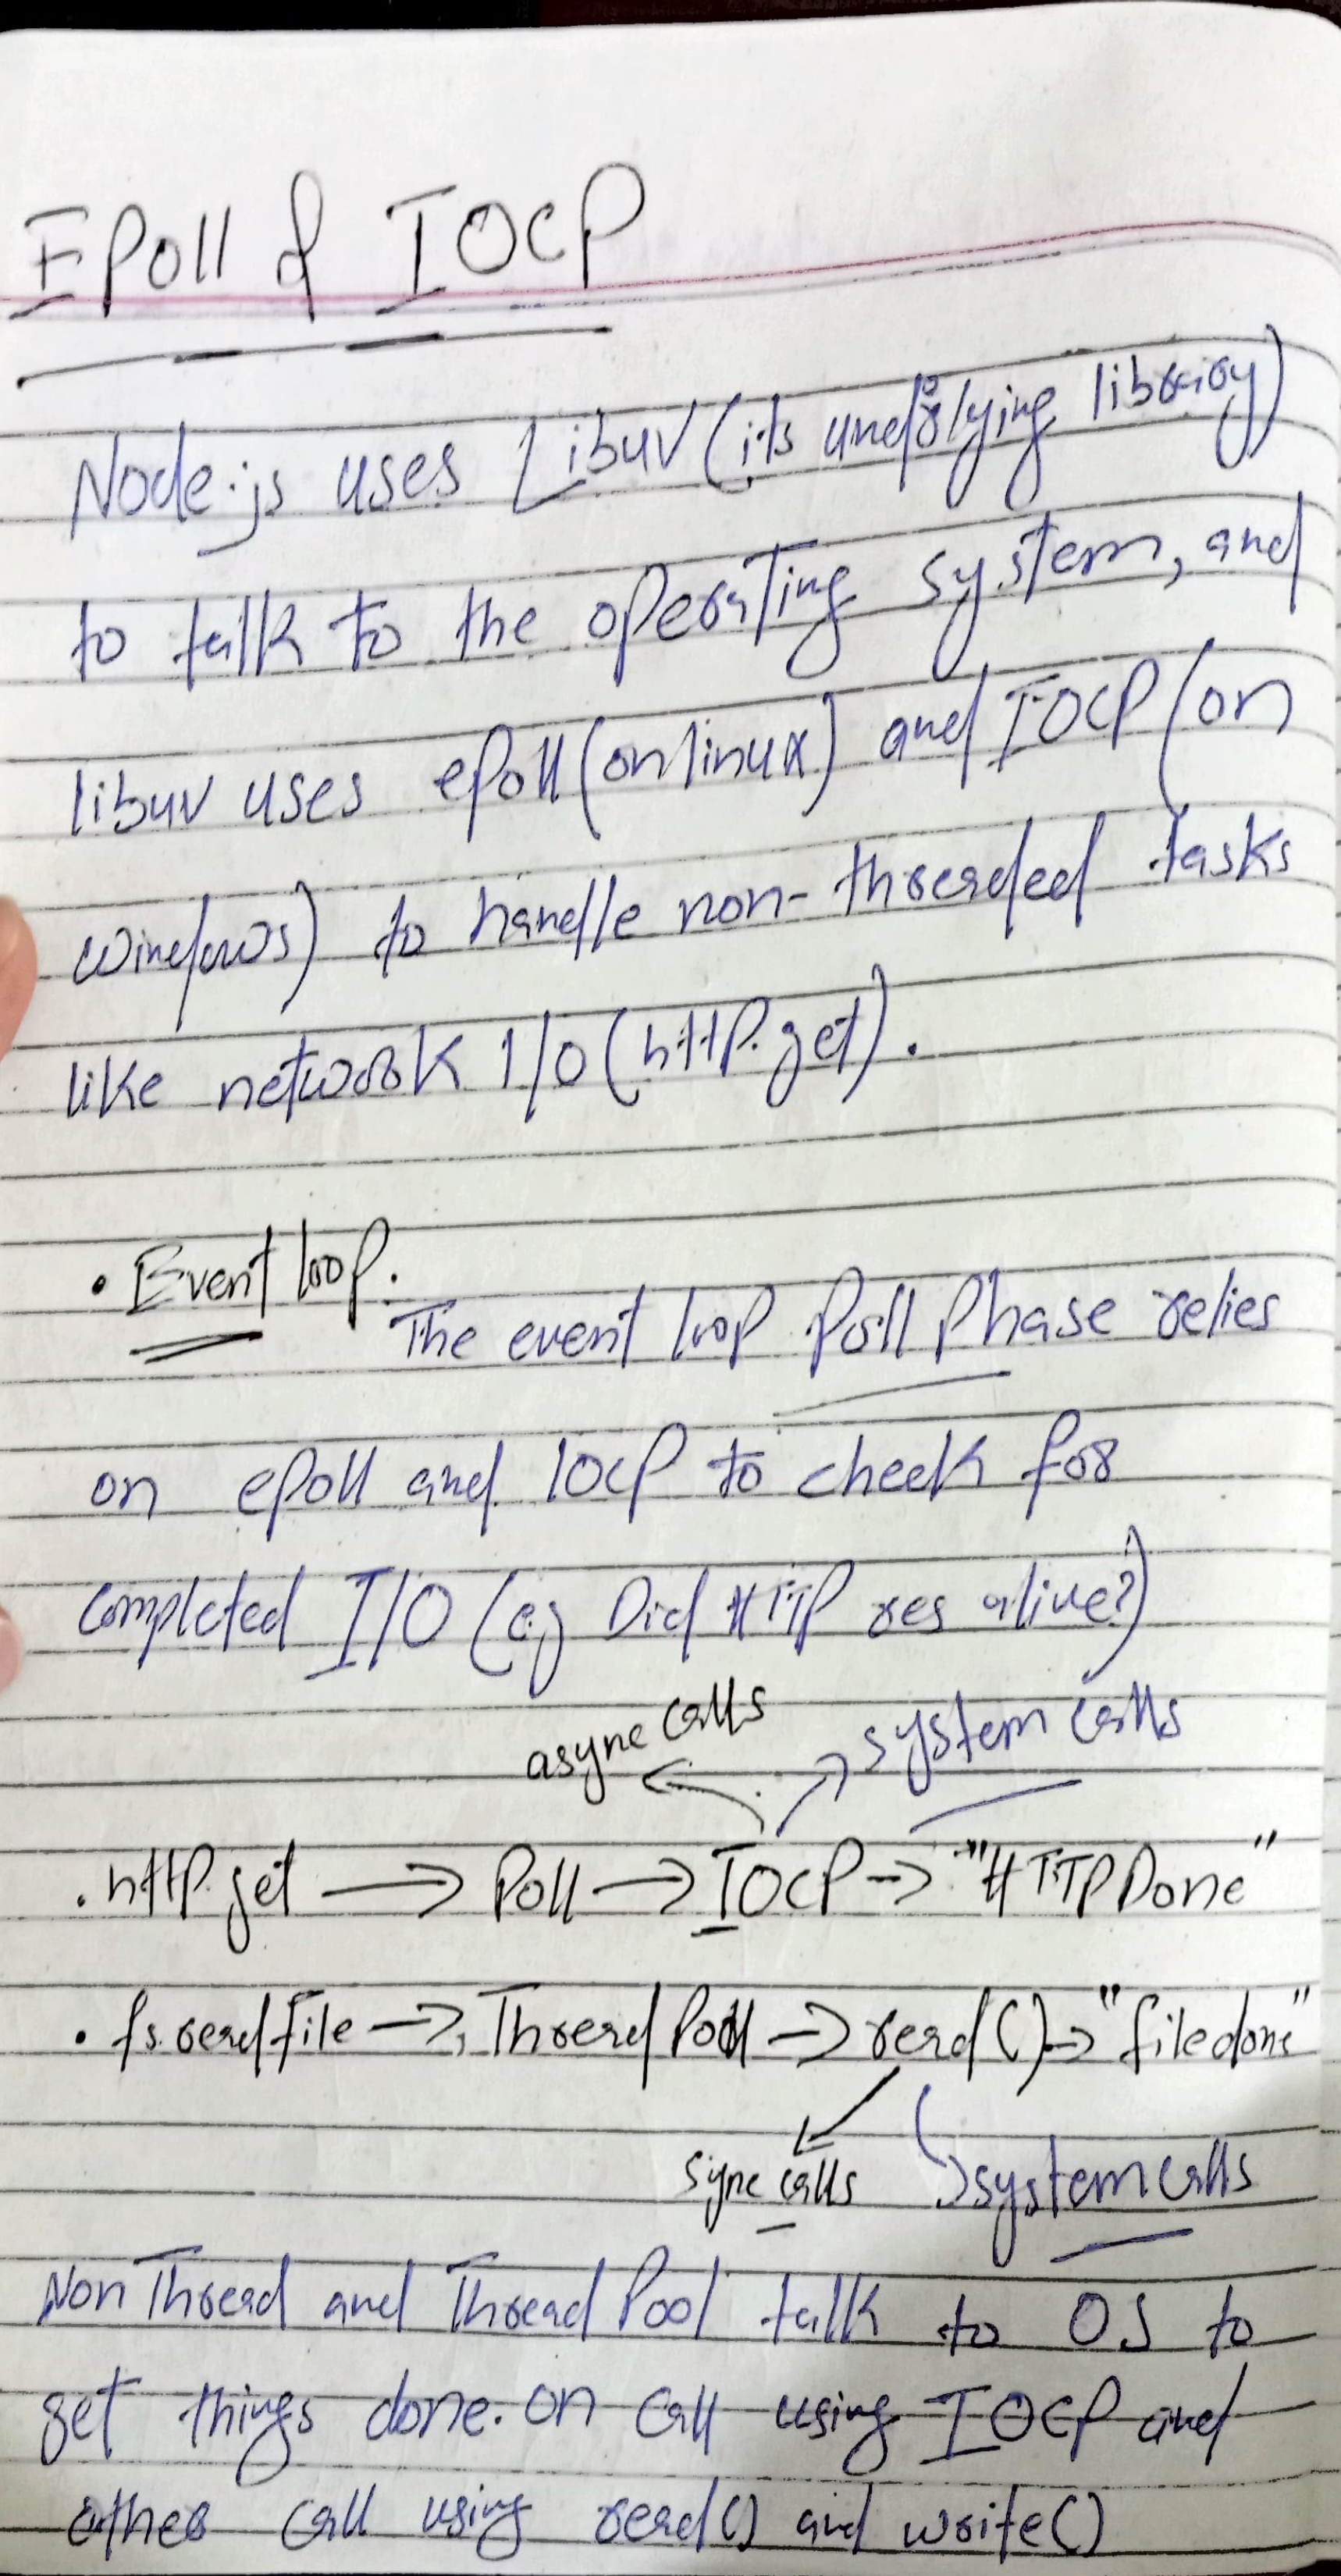 EPoll & IOCP
Node.js uses Libuv (its underlying library)
to talk to the operating system, and
libuv uses epoll (on linux) and IOCP (on
windows) to handle non-threaded tasks
like network I/O (http.get).
• Event loop.
The event loop Poll Phase relies
on epoll and IOCP to check for
completed I/O (e.g Did HTTP res alive?)
async calls system calls
• http.get → Poll → IOCP → "HTTP Done"
• fs.readfile → Thread Pool → read() → "file done"
sync calls system calls
Non Thread and Thread Pool talk to OS to
get things done. on call using IOCP and
other call using read() and write()